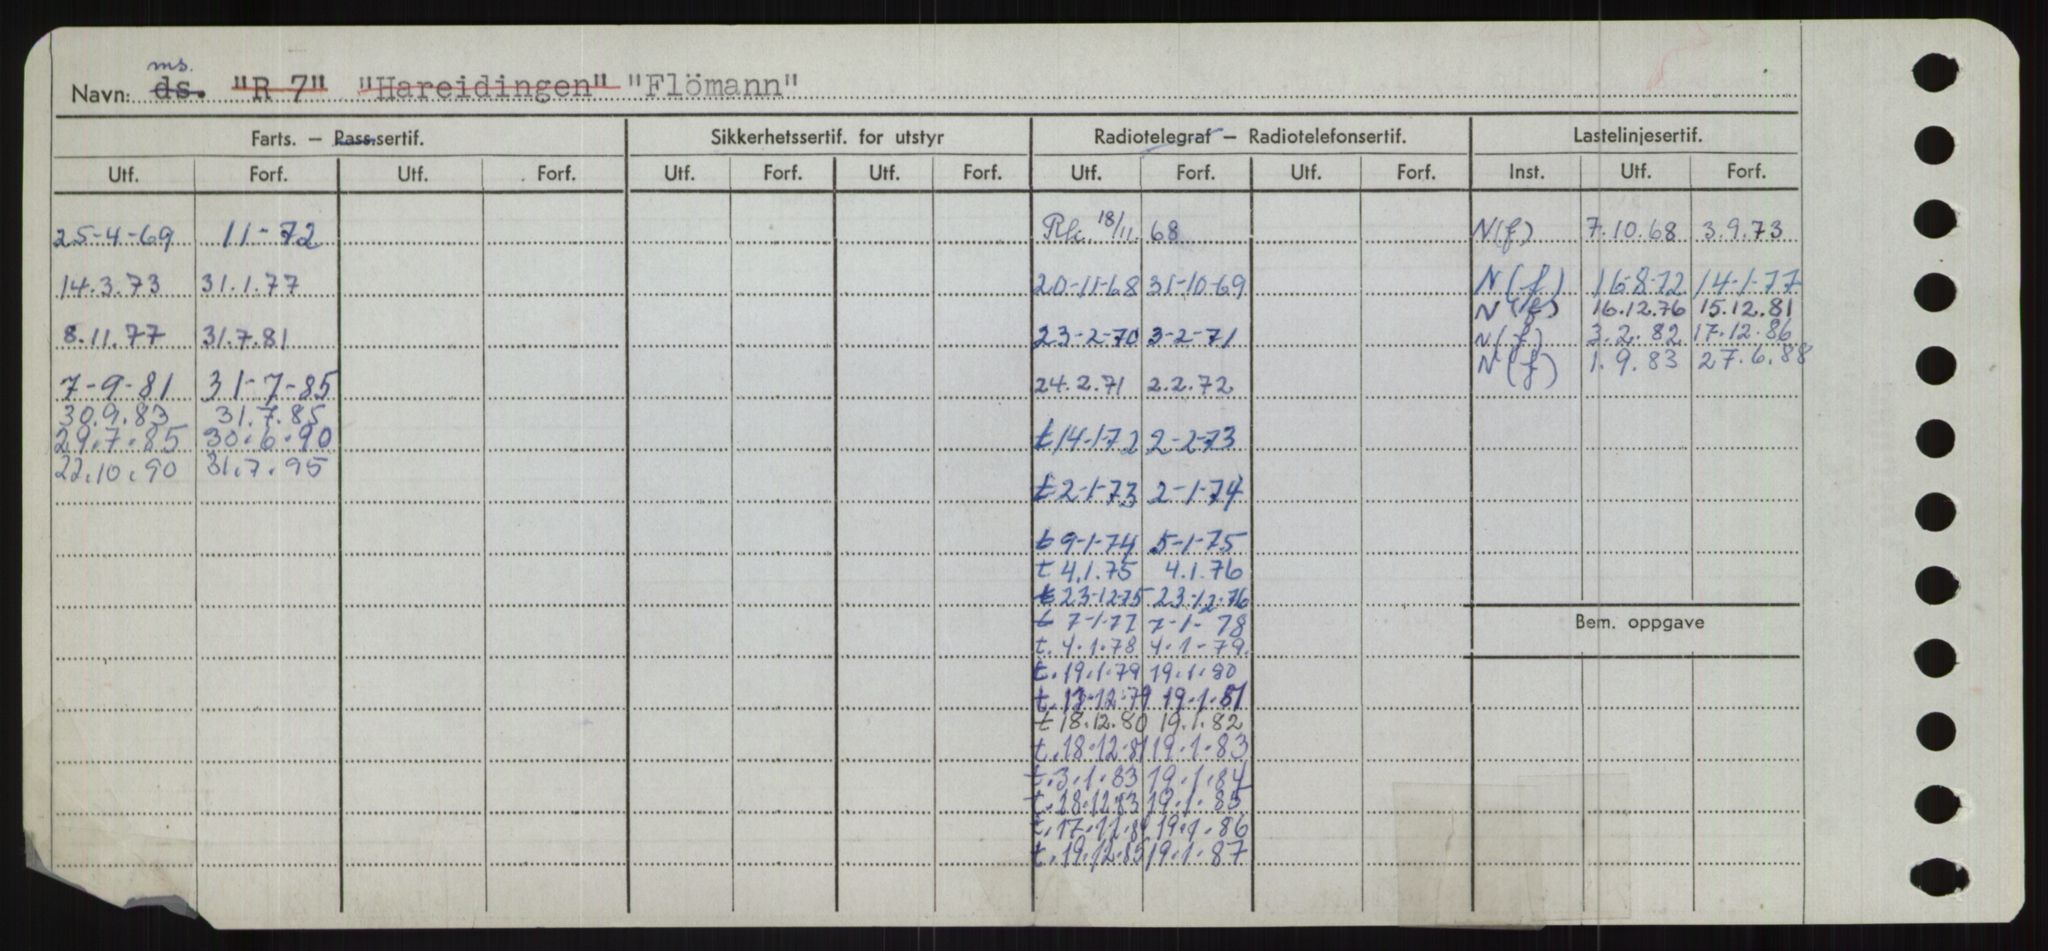 ms.
Navn: ds. "R 7" "Hareidingen" "Flömann"
Farts. — Pass.sertif. Sikkerhetssertif. for utstyr Radiotelegraf — Radiotelefonsertif. Lastelinjesertif.
Utf. Forf. Utf. Forf. Utf. Forf. Utf. Forf. Utf. Forf. Utf. Forf. Inst. Utf. Forf.
25-4-69 11-72 Rk. 18/11. 68 N(f) 7.10.68 3.9.73
14.3.73 31.1.77 20-11-68 31-10-69 N(f) 16-8-72 14-1-77
N(f) 16.12.76 15.12.81
8.11.77 31.7.81 23-2-70 3-2-71 N(f) 3.2.82 17.12.86
N(f) 1.9.83 27.6.88
7-9-81 31-7-85 24.2.71 2.2.72
30.9.83 31.7.85
29.7.85 30.6.90 t 14-1-72 2-2-73
22.10.90 31.7.95
t 2-1-73 2-1-74
t 9-1-74 5-1-75
t 4.1.75 4.1.76
t 23-12-75 23-12-76
t 7-1-77 7-1-78
Bem. oppgave
t. 4.1.78 4.1-79.
t. 19.1.79 19.1.80
t. 13.12.79 19.1.81
t 18.12.80 19.1.82
t. 18.12.81 19.1.83
t. 3.1.83 19.1.84
t. 28.12.83 19.1.85
t. 17.12.84 19.1.86
t. 19.12.85 19.1.87